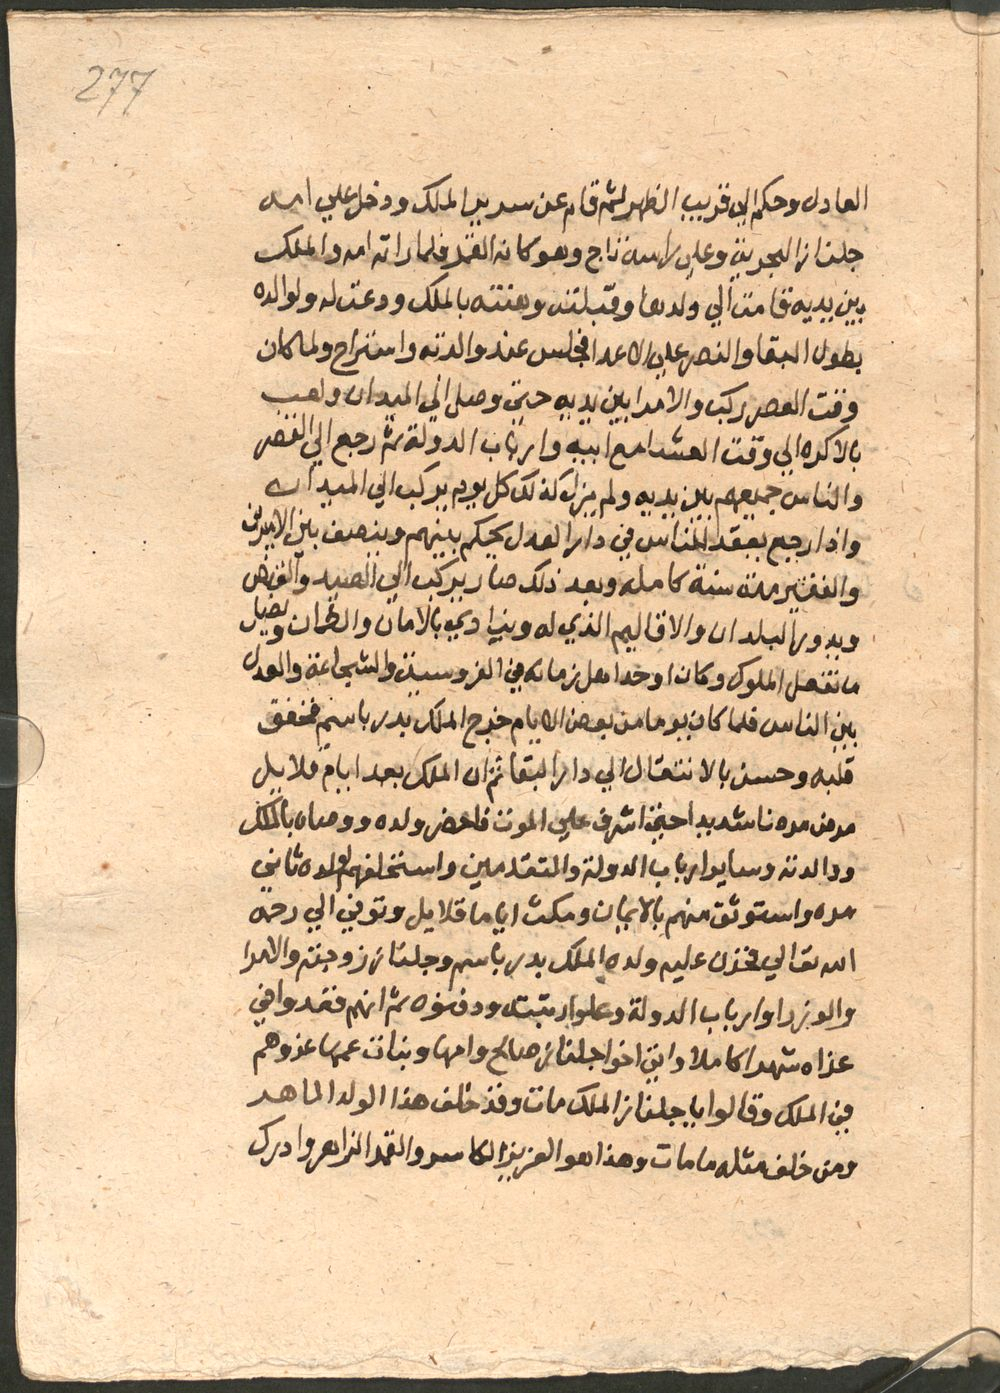 277
العادل وحكم الي قريب الظهر ثم قام عن سرير الملك ودخل علي امه
جلناز البحرية وعلي راسه تاج وهو كانه القمر فلما راته امه والملك
بين يديه قامت الي ولدها وقبلته وهنته بالملك ودعت له ولوالده
بطول البقا والنصر علي الاعدا فجلس عند والدته واستراح ولما كان
وقت العصر ركب والامرا بين يديه حتي وصل الي الميدان ولعب
بالاكره الي وقت العشا مع ابيه وارباب الدولة ثم رجع الي القصر
والناس جميعهم بين يديه ولم يزل كذلك كل يوم يركب الي الميدان
واذا رجع يقعد للناس في دار العدل يحكم بينهم وينصف بين الامير
والفقير مدة سنة كامله وبعد ذلك صار يركب الي الصيد والقنص
ويدور البلدان والاقاليم الذي له وينادي بالامان والاطمان ويفعل
ما تفعل الملوك وكان اوحد اهل زمانه في الفروسية والشجاعة والعدل
بين الناس فلما كان يوما من بعض الايام خرج الملك بدر باسم فخفق
قلبه وحسن بالانتقال الي دار البقا ثم ان الملك بعد ايام قلايل
مرض مرضا شديدا حتي اشرف علي الموت فاحضر ولده ووصاه بالملك
ووالدته وساير ارباب الدولة والمتقدمين واستخلفهم لولده ثاني
مره واستوثق منهم بالايمان ومكث اياما قلايل وتوفي الي رحمة
الله تعالي فحزن عليه ولده الملك بدر باسم وجلناز زوجته والامرا
والوزرا وارباب الدولة وعملوا له تربة ودفنوه ثم انهم قعدوا في
عزاه شهرا كاملا واتي اخوا جلناز صالح وامها وبنات عمها عزوهم
في الملك وقالوا يا جلناز الملك مات وقد خلف هذا الولد الماهر
ومن خلف مثله ما مات وهذا هو العزيز الكاسر والقمر الزاهر وادرك